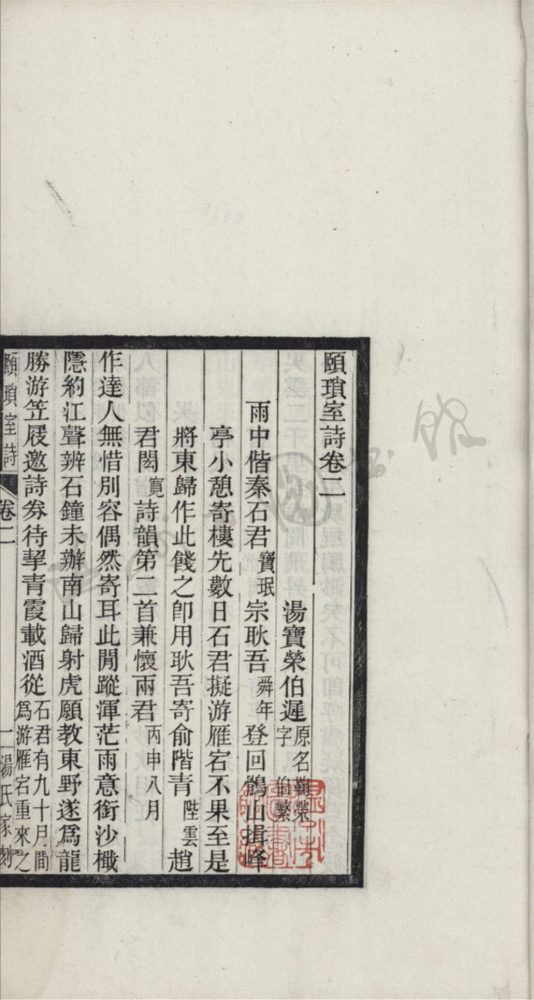 頤瑣室詩卷二
湯寶榮伯遲原名鞠榮字伯繁
雨中偕秦石君寶珉宗耿吾舜年登回鶴山揖峰
亭小憩寄樓先數日石君擬游雁宕不果至是
將東歸作此餞之卽用耿吾寄俞階青陛雲趙
君閎寬詩韻第二首兼懷兩君丙申八月
作達人無惜別容偶然寄耳此閒蹤渾茫雨意銜沙檝
隱約江聲辨石鐘未辦南山歸射虎願教東野遂爲龍
勝游笠屐邀詩券待挈青霞載酒從石君有九十月間爲游雁宕重來之
頤瑣室詩 卷二 一 湯氏家刻